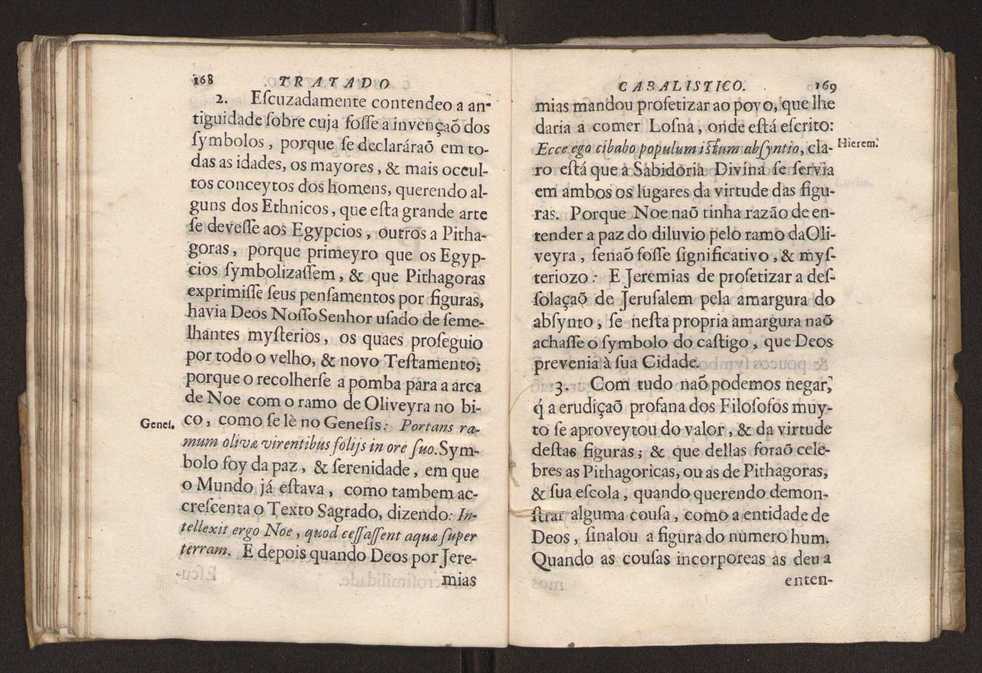 168 TRATADO
2. Eſcuzadamente contendeo a an-
tiguidade ſobre cuja foſſe a invençaõ dos
ſymbolos, porque ſe declaráraõ em to-
das as idades, os mayores, & mais occul-
tos conceytos dos homens, querendo al-
guns dos Ethnicos, que eſta grande arte
ſe deveſſe aos Egypcios, outros a Pitha-
goras, porque primeyro que os Egyp-
cios ſymbolizaſſem, & que Pithagoras
exprimiſſe ſeus penſamentos por figuras,
havia Deos Noſſo Senhor uſado de ſeme-
lhantes myſterios, os quaes proſeguio
por todo o velho, & novo Teſtamento;
porque o recolherſe a pomba para a arca
de Noe com o ramo de Oliveyra no bi-
Geneſ. co, como ſe lè no Geneſis: Portans ra-
mum olivæ virentibus folijs in ore ſuo. Sym-
bolo foy da paz, & ſerenidade, em que
o Mundo já eſtava, como tambem ac-
creſcenta o Texto Sagrado, dizendo: In-
tellexit ergo Noe, quod ceſſaſſent aquæ ſuper
terram. E depois quando Deos por Jere-
mias
CABALISTICO. 169
mias mandou profetizar ao povo, que lhe
daria a comer Loſna, onde está eſcrito:
Ecce ego cibabo populum iſtum abſyntio, cla- Hierem.
ro eſtá que a Sabidoria Divina ſe ſervia
em ambos os lugares da virtude das figu-
ras. Porque Noe naõ tinha razão de en-
tender a paz do diluvio pelo ramo da Oli-
veyra, ſenaõ foſſe ſignificativo, & myſ-
teriozo: E Jeremias de profetizar a deſ-
ſolaçaõ de Jeruſalem pela amargura do
abſynto, ſe neſta propria amargura naõ
achaſſe o ſymbolo do caſtigo, que Deos
prevenia à ſua Cidade.
3. Com tudo naõ podemos negar,
q́ a erudiçaõ profana dos Filoſofos muy-
to ſe aproveytou do valor, & da virtude
deſtas figuras; & que dellas foraõ cele-
bres as Pithagoricas, ou as de Pithagoras,
& ſua eſcola, quando querendo demon-
ſtrar alguma couſa, como a entidade de
Deos, ſinalou a figura do numero hum.
Quando as couſas incorporeas as deu a
enten-